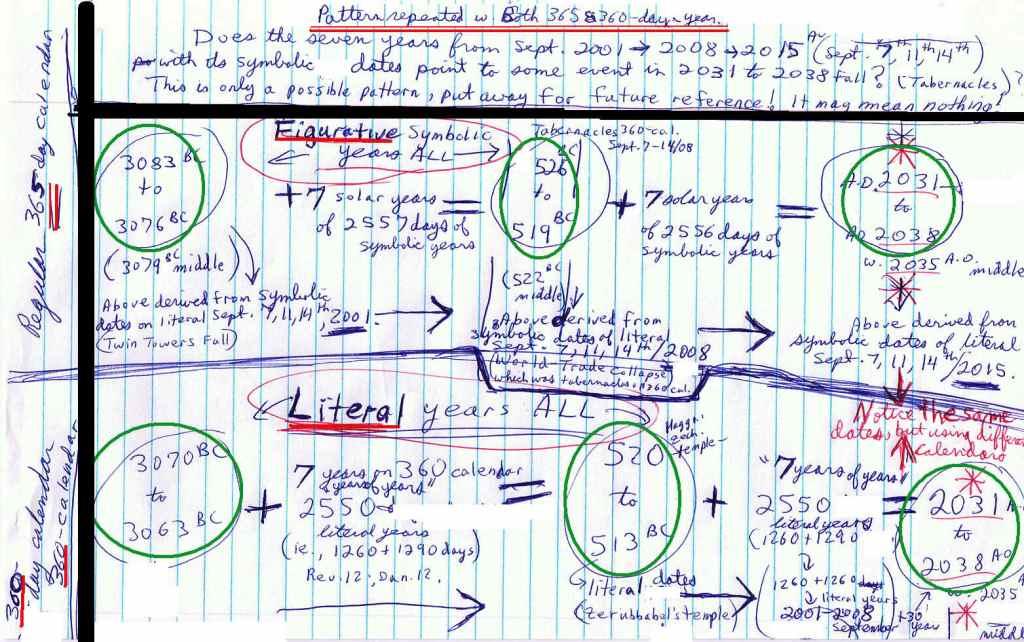 Pattern repeated w. Both 365 & 360-day-year.
Does the seven years from Sept. 2001 → 2008 → 2015 (Sept. 7th, 11th 14th)
with its symbolic dates point to some event in 2031 to 2038 fall? (Tabernacles)?
This is only a possible pattern, put away for future reference! It may mean nothing!
Reguler 365 day calendar
3083 BC
to
3076 BC
(3079 BC middle)
Figurative Symbolic
years ALL
+ 7
solar years
of 2557 days of
symbolic years
=
Tabernacles 360-cal.
Sept. 7-14/08
BC
526
to
519 BC
(522 BC
middle)
+ 7 solar years
of 2556 days of
symbolic years
=
A.D. 2031
to
AD 2038
w. 2035 A.D. middle
Above derived from symbolic
dates on literal Sept. 7, 11, 14th, 2001.
(Twin Towers Fall)
Above derived from
symbolic dates of literal
Sept. 7, 11, 14th/2008
(World Trade Collapse
which was tabernacles, 360 cal.
Above derived from
symbolic dates of literal
Sept. 7, 11, 14th/2015.
Literal years ALL
Notice the same
dates, but using different
calendars
360
-day calendar
360-calendar
3070 BC
to
3063 BC
+
7 years on 360 calendar
"years of years"
2550
literal years
(ie., 1260 + 1290 days)
Rev. 12, Dan. 12.
=
520
to
513 BC
Haggai
zech.
temple
literal dates
(Zerubbabel's temple)
+
"7 years of years"
2550
literal years
(1260 + 1290
=
1260 + 1260 days
literal years
2001-2008
September
+30
year
2031 A
to
2038 AD
w. 2035
middl